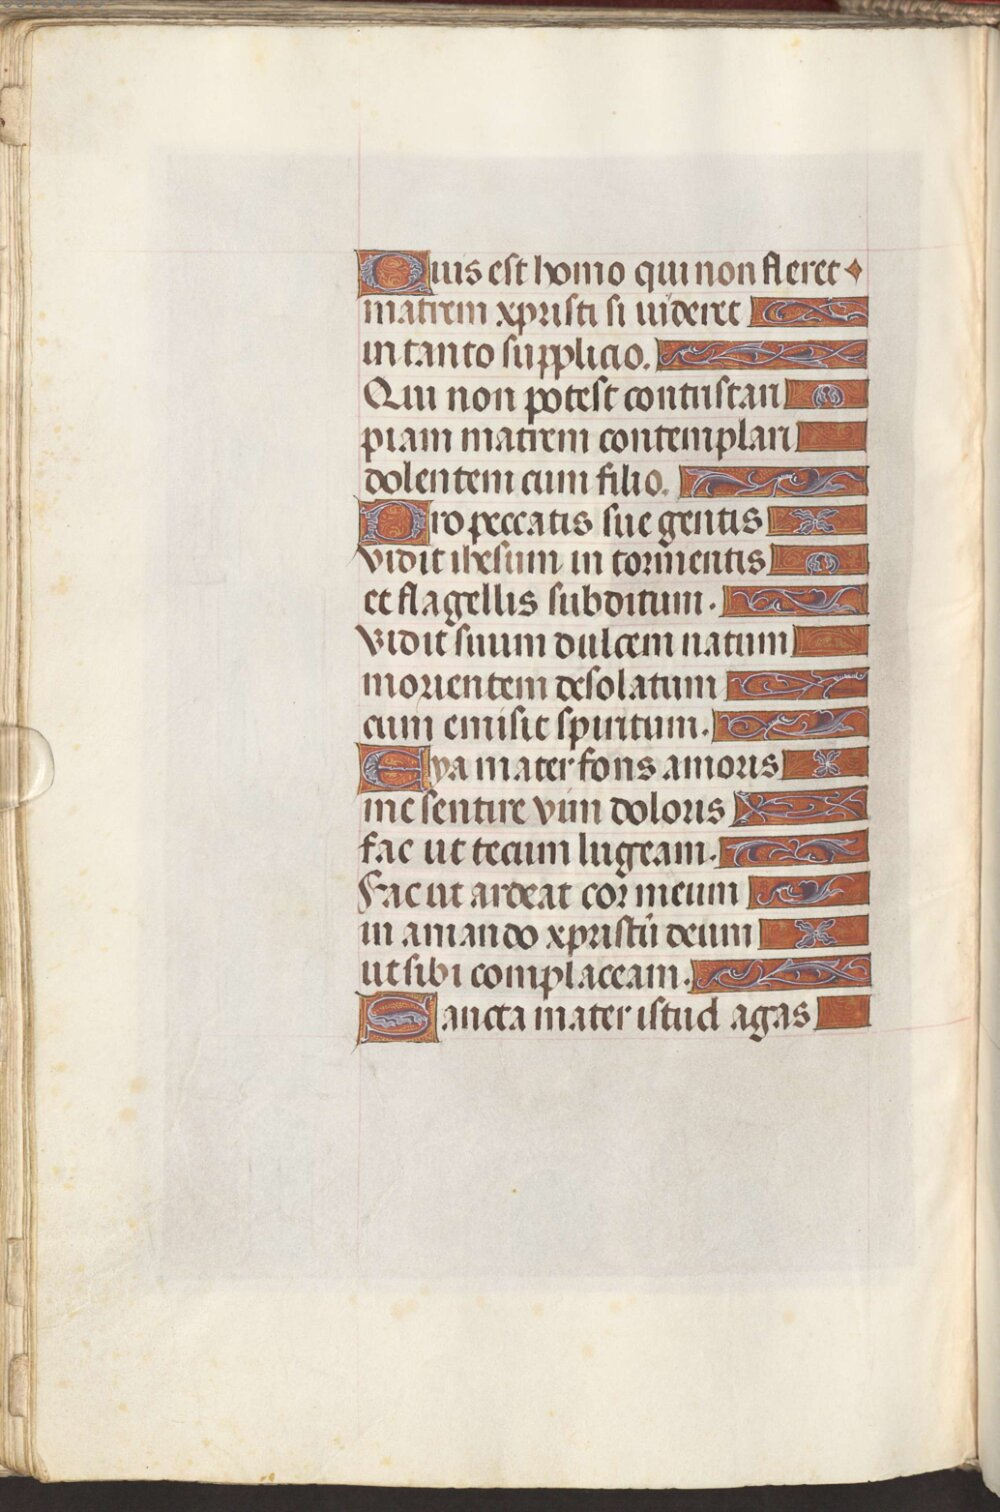 Quis est homo qui non fleret
matrem xpristi si uideret
in tanto supplicio.
Qui non potest contristari
piam matrem contemplari
dolentem cum filio.
Pro peccatis sue gentis
vidit ihesum in tormentis
et flagellis subditum.
vidit suum dulcem natum
morientem desolatum
cum emisit spiritum.
Eya mater fons amoris
me sentire vim doloris
fac ut tecum lugeam.
Fac ut ardeat cor meum
in amando xpristū deum
ut sibi complaceam.
Sancta mater istud agas